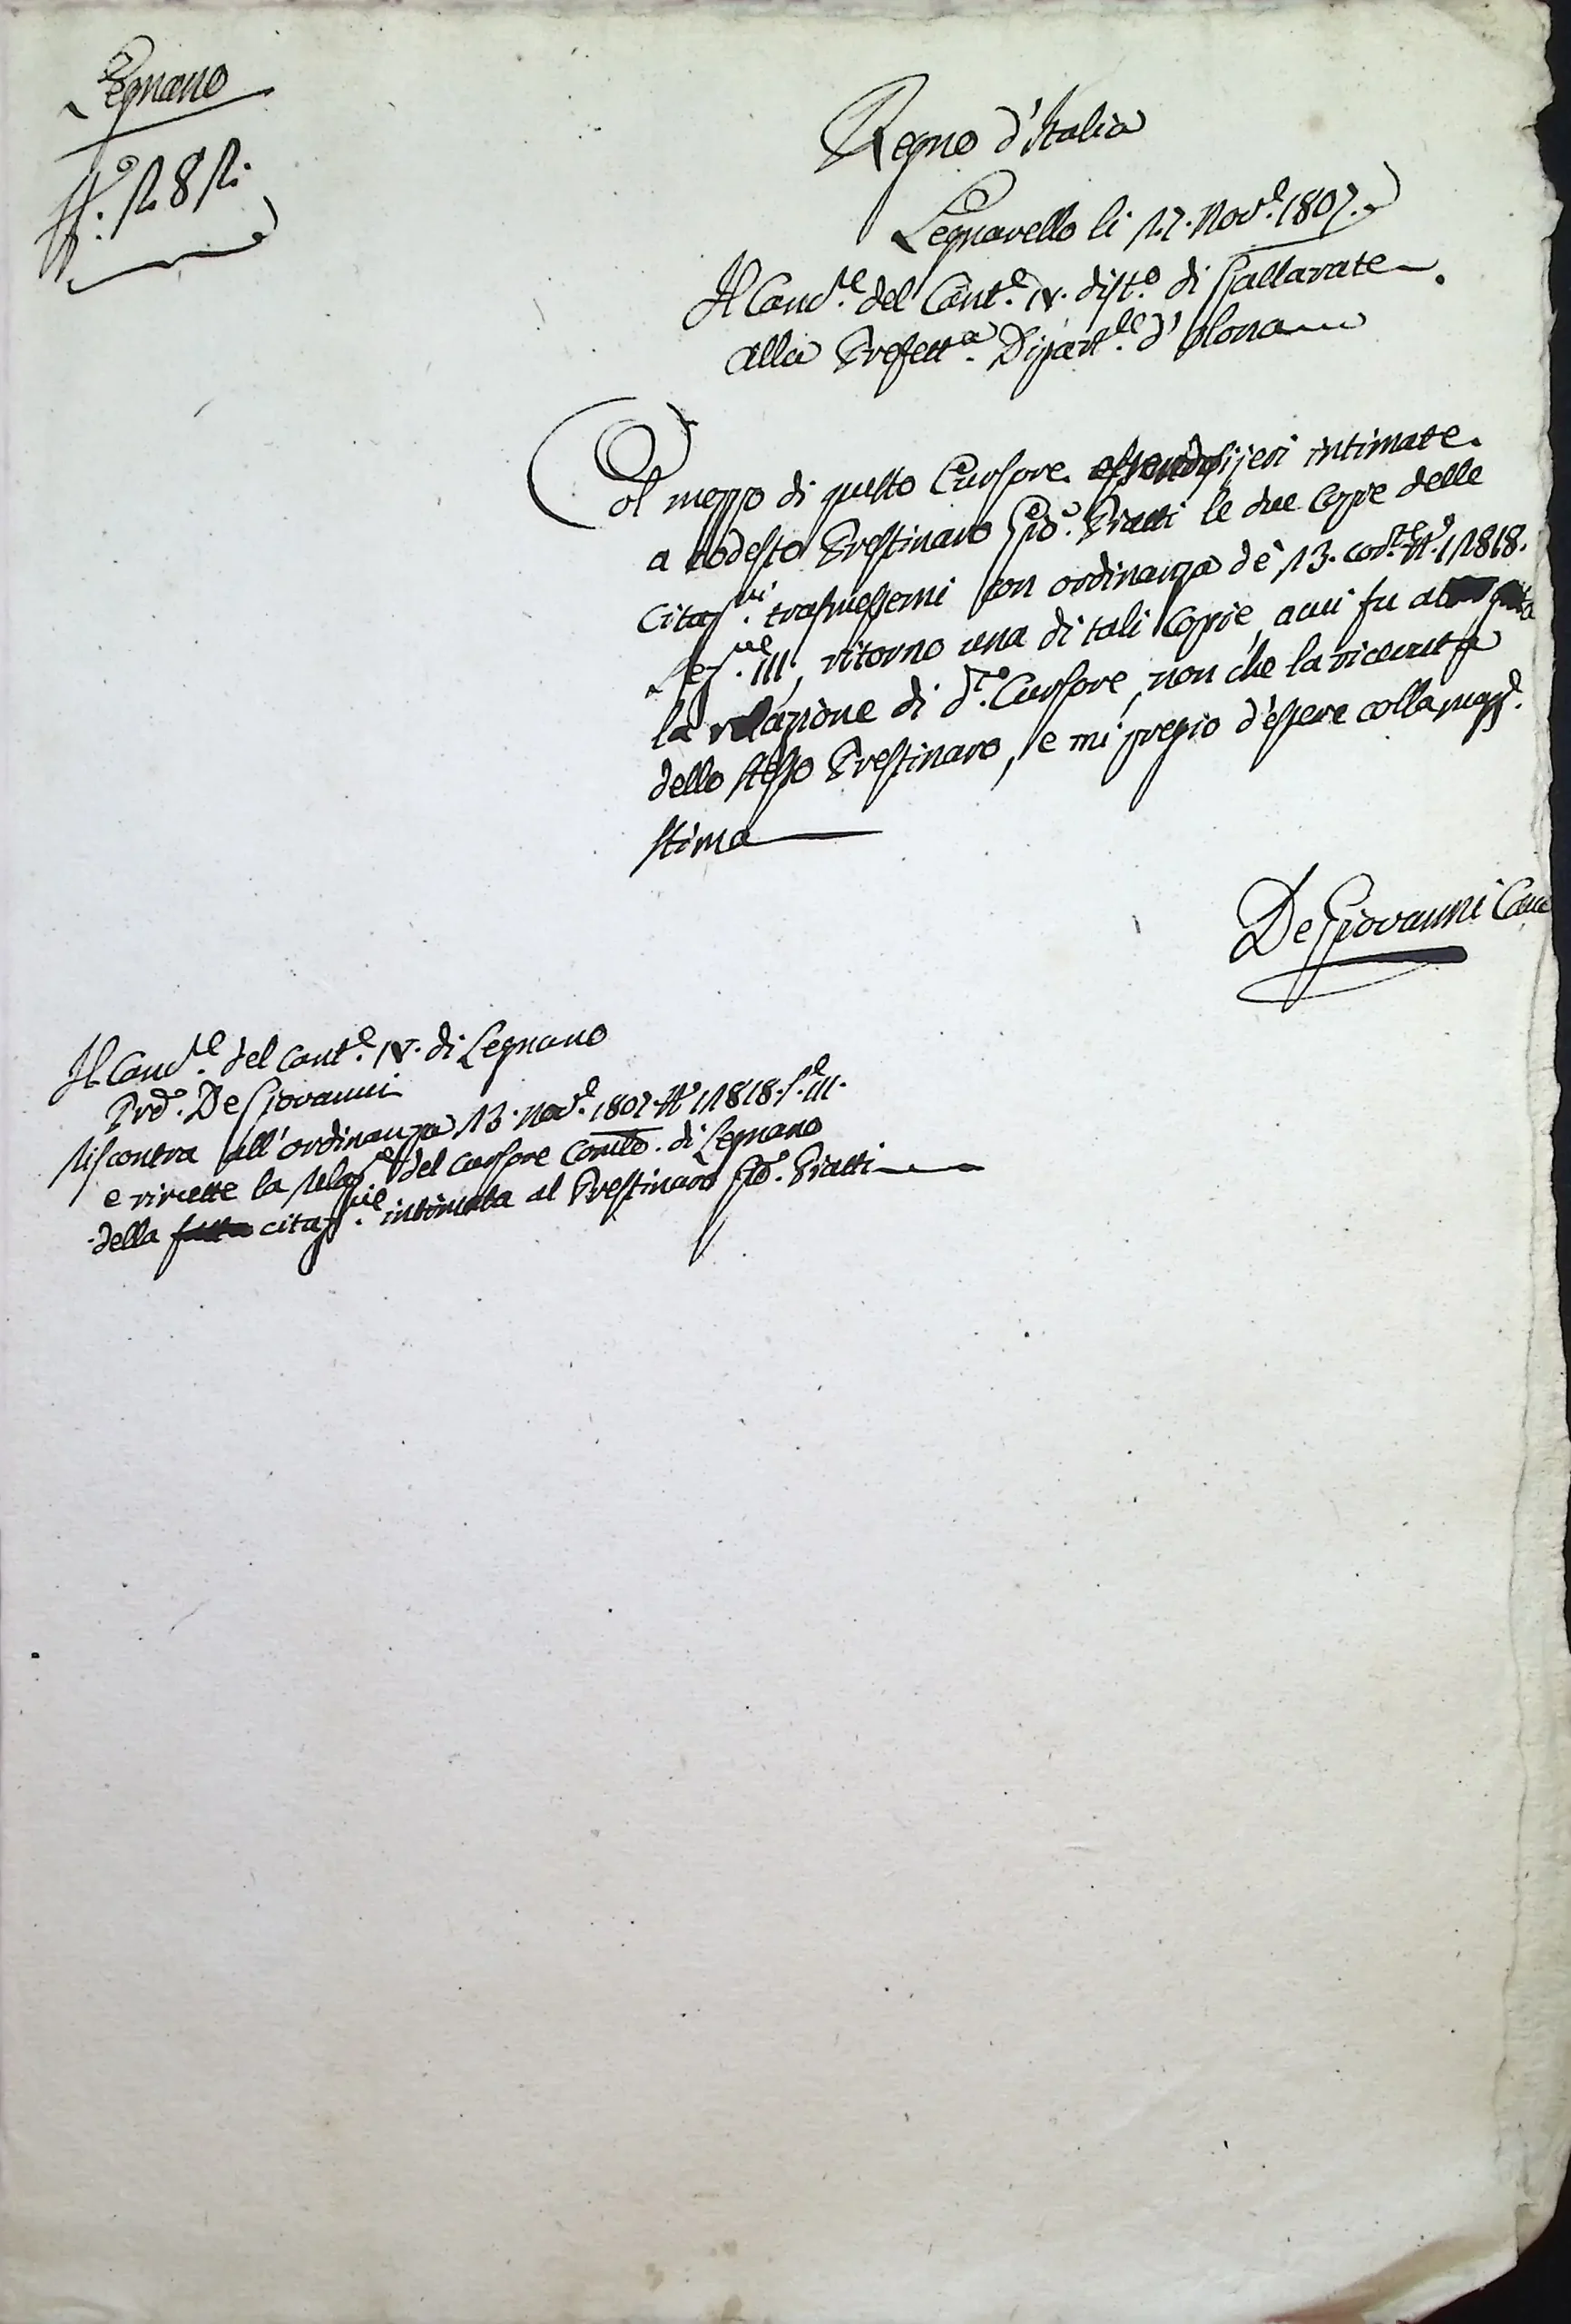 Legnano
N.° 181.
Regno d'Italia
Legnarello li 17. Nov.e 1807.
Il Canc.re del Cant.e IV. dist.o di Gallarate
alla Prefett.a Dipart.le d'Olona
Col mezzo di questo Cursore essendosi jeri intimate
a codesto Prestinaro Gio. Piatti le due Copie delle
Citaz.ni trasmessemi con ordinanza de' 13. cor.te N.° 11818.
Sez.ne III, ritorno una di tali Copie, a cui fu
la relazione di d.to Cursore, non che la ricevuta
dello stesso Prestinaro, e mi pregio d'essere colla mass.a
stima
De Giovanni Canc
Il Canc.re del Cant.e IV. di Legnano
Pre.o De Giovanni
Riscontra all'ordinanza 13. Nov.e 1807. N.° 11818. S.e III.
e rimette la Relaz.e del Cursore Com.le di Legnano
della citaz.ne intimata al Prestinaro Gio. Piatti